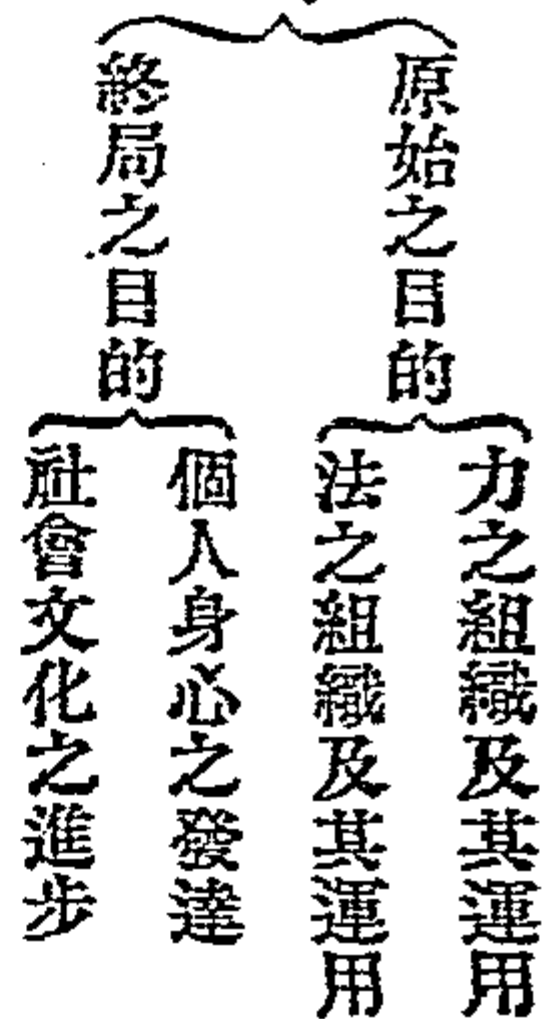 原始之目的
力之組織及其運用
法之組織及其運用
終局之目的
個人身心之發達
社會文化之進步